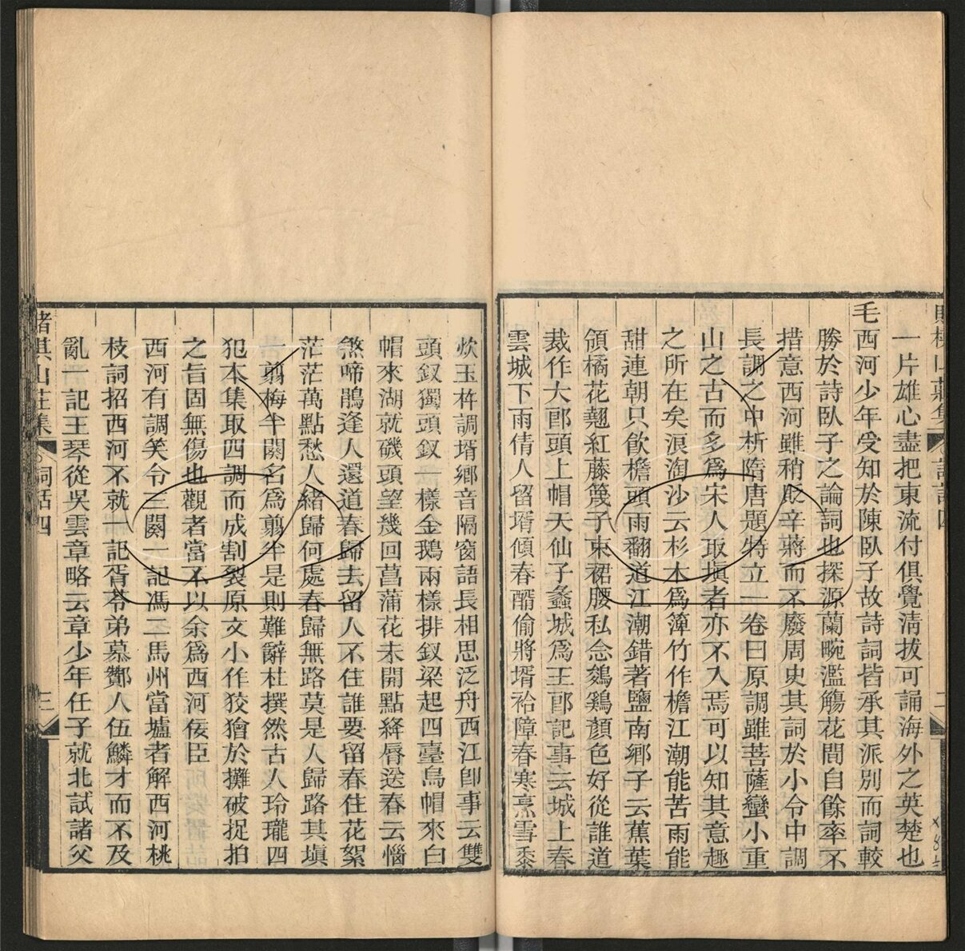 賭棋山莊集 詞話四 二
一片雄心盡把東流付俱覺淸拔可誦海外之英楚也
毛西河少年受知於陳臥子故詩詞皆承其派別而詞較
勝於詩臥子之論詞也探源蘭畹濫觴花間自餘率不
措意西河雖稍貶辛蔣而不廢周史其詞於小令中調
長調之中析隋唐題特立一卷曰原調雖菩薩蠻小重
山之古而多爲宋人取塡者亦不入焉可以知其意趣
之所在矣浪淘沙云杉木爲簰竹作檐江潮能苦雨能
甜連朝只飮檐頭雨翻道江潮錯著鹽南鄉子云蕉葉
領橘花翹紅藤篾子束裙腰私念鷄鷄顏色好從誰道
裁作大郞頭上帽天仙子蠡城爲王郞記事云城上春
雲城下雨倩人留壻傾春醑偷將壻袷障春寒烹雪黍
炊玉杵調壻鄉音隔窗語長相思泛舟西江卽事云雙
頭釵獨頭釵一樣金鵝兩樣排釵梁起四臺烏帽來白
帽來湖就磯頭望幾回菖蒲花未開點絳脣送春云惱
煞啼鵑逢人還道春歸去留人不住誰要留春住花絮
茫茫萬點愁人緒歸何處春歸無路莫是人歸路其塡
一剪梅半闋名爲剪半是則難辭杜撰然古人玲瓏四
犯本集取四調而成割裂原文小作狡獪於攤破捉拍
之旨固無傷也觀者當不以余爲西河佞臣
西河有調笑令三闋一記馮二馬州當壚者解西河桃
枝詞招西河不就一記胥苓弟慕鄰人伍鱗才而不及
亂一記王琴從吳雲章略云章少年任子就北試諸父
賭棋山莊集 詞話四 三